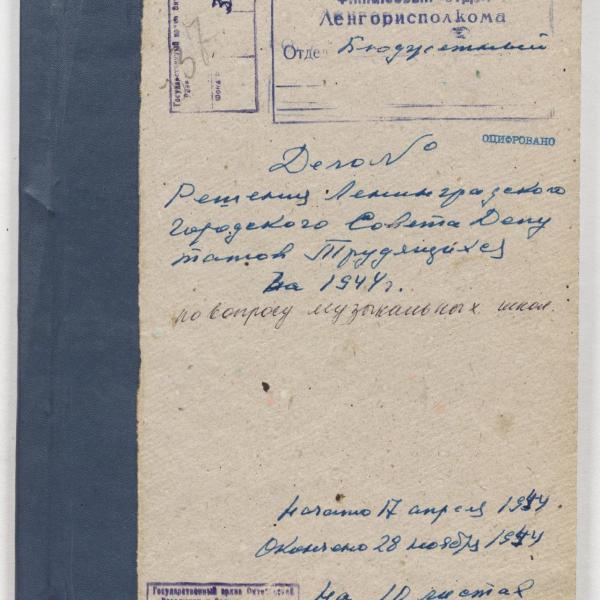 Государственный архив Окт
Фонд
37
Финансовый отдел
Ленгорисполкома
Отдел Бюджетный
ОЦИФРОВАНО
Дело №
Решения Ленинградского
Городского Совета Депу
татов Трудящихся
на 1944 г.
по вопросу музыкальных школ.
Начато 17 апреля 1944.
Окончено 28 ноября 1944
Государственный архив Октябрьской
На 10 листах